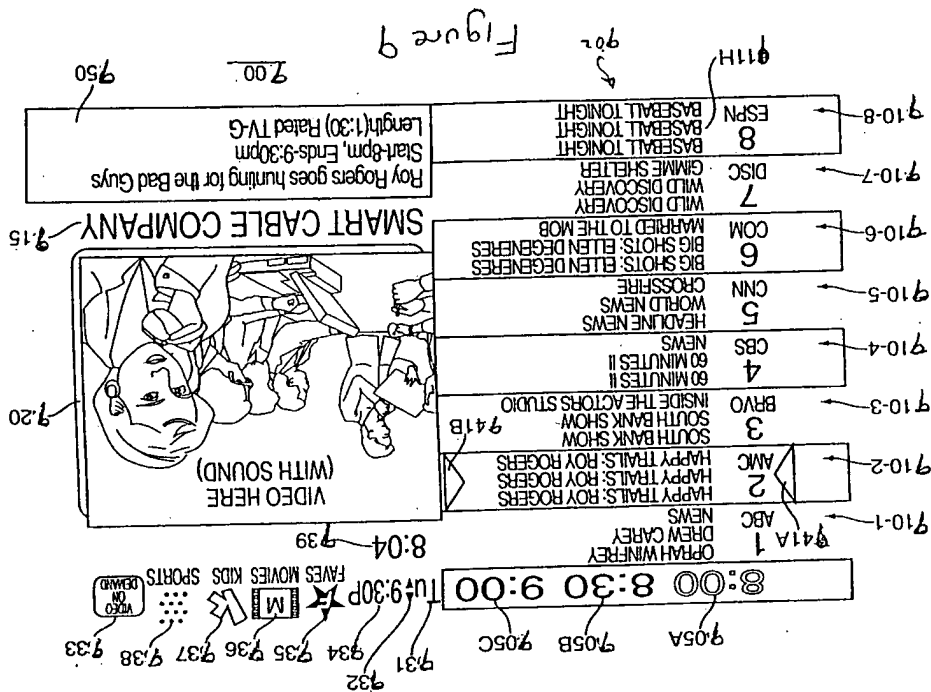 9.05A 9.05B 9.05C 9.31 932 934 9.35 9.36 9.37 9.38 9.33
8:00 8:30 9:00
Tu 9:30P
FAVES
M
MOVIES
KIDS
SPORTS
VIDEO
ON
DEMAND
8:04
939
910-1
1
ABC
OPRAH WINFREY
DREW CAREY
NEWS
941A
910-2
2
AMC
HAPPY TRAILS: ROY ROGERS
HAPPY TRAILS: ROY ROGERS
HAPPY TRAILS: ROY ROGERS
941B
910-3
3
BRVO
SOUTH BANK SHOW
SOUTH BANK SHOW
INSIDE THE ACTORS STUDIO
910-4
4
CBS
60 MINUTES II
60 MINUTES II
NEWS
910-5
5
CNN
HEADLINE NEWS
WORLD NEWS
CROSSFIRE
910-6
6
COM
BIG SHOTS: ELLEN DEGENERES
BIG SHOTS: ELLEN DEGENERES
MARRIED TO THE MOB
910-7
7
DISC
WILD DISCOVERY
WILD DISCOVERY
GIMME SHELTER
910-8
8
ESPN
BASEBALL TONIGHT
BASEBALL TONIGHT
BASEBALL TONIGHT
911H
902
VIDEO HERE
(WITH SOUND)
9.20
SMART CABLE COMPANY
9.15
Roy Rogers goes hunting for the Bad Guys
Start-8pm, Ends-9:30pm
Length(1:30) Rated TV-G
9.50
9.00
Figure 9